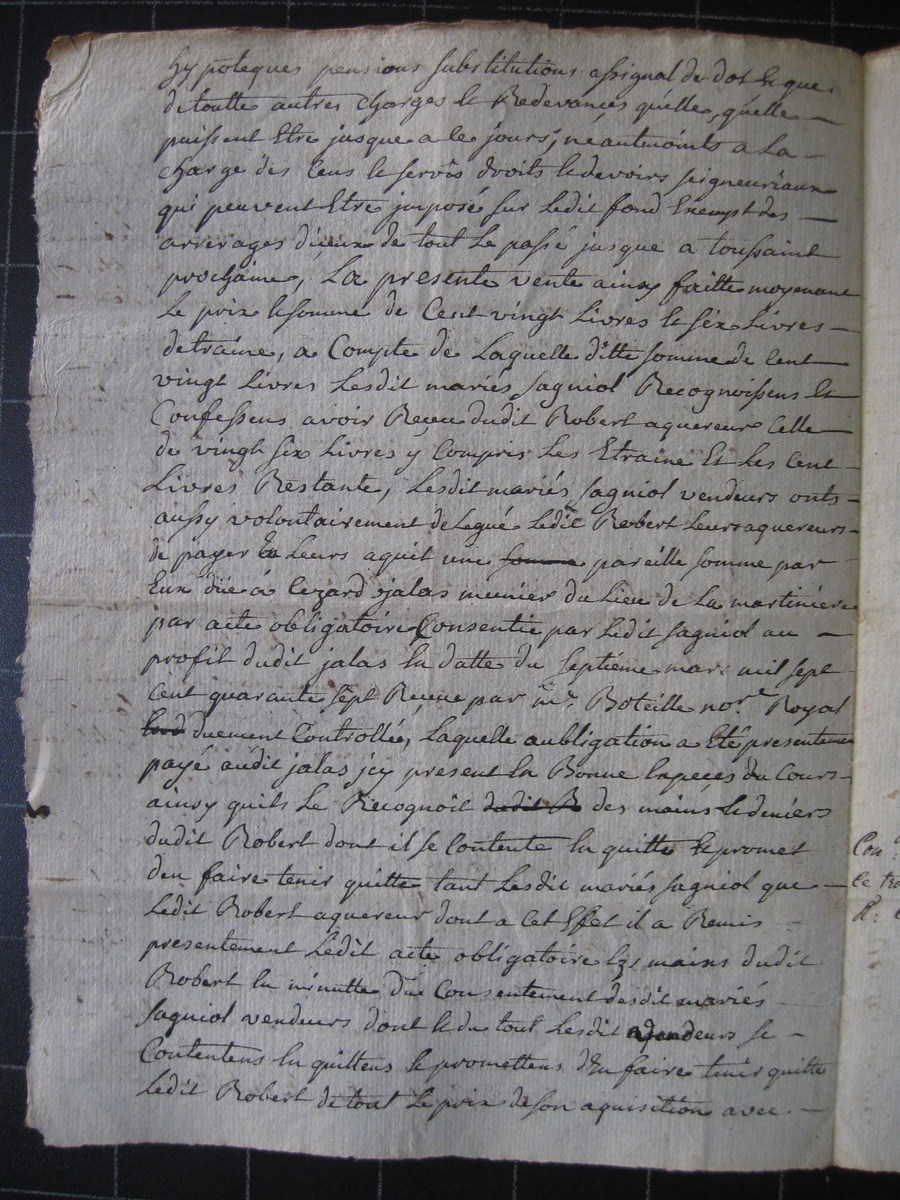 hypoteques pensions substitutions assignal de dot & que
de toutte autres charges & Redevances quelle, quelle
puissent Etre jusque a ce jours, neantmoints a La
charge des Cens & servis droits & devoirs seigneuriaux
qui peuvent Etre imposé sur ledit fond Exempt des
arrerages d'iceux de tout Le passé jusque a toussaint
prochaine, La presente vente ainsy faitte moyenant
Le prix & somme de Cent vingt Livres & six Livres
detraine, a Compte de Laquelle ditte somme de Cent
vingt Livres Lesdit mariés sagniol Recognoissens &
Confessens avoir Reçeu dudit Robert aquereur Celle
de vingt six Livres y Compris Les Etraine Et Les Cent
Livres Restante, Lesdit mariés sagniol vendeurs onts
aussy volontairement delegué Ledit Robert Leurs aquereurs
de payer En Leurs aquit une somme pareille somme par
Eux düe á jalas meunier du Lieu de La martiniere
par acte obligatoire Consentie par Ledit sagniol au
profit dudit jalas En datte du septiéme mars mil sept
Cent quarante sept Reçue par me. Boteille nore. Royal
duement Controllée, Laquelle aubligation a Eté presentement
payé audit jalas icy present En Bonne Especes du Cours
ainsy quils Le Recognoit dudit R des mains & deniers
dudit Robert dont il se Contente En quitte & promet
den faire tenir quitte tant Lesdit mariés sagniol que
Ledit Robert aquereur dont a Cet Effet il a Remis
presentement Ledit acte obligatoire Es mains dudit
Robert En minutte du Consentement desdit mariés
sagniol vendeurs dont & du tout Lesdit vendeurs se
Contentens En quittens & promettens dEn faire tenir quitte
Ledit Robert de tout Le prix de son aquisition avec
Con
Ce